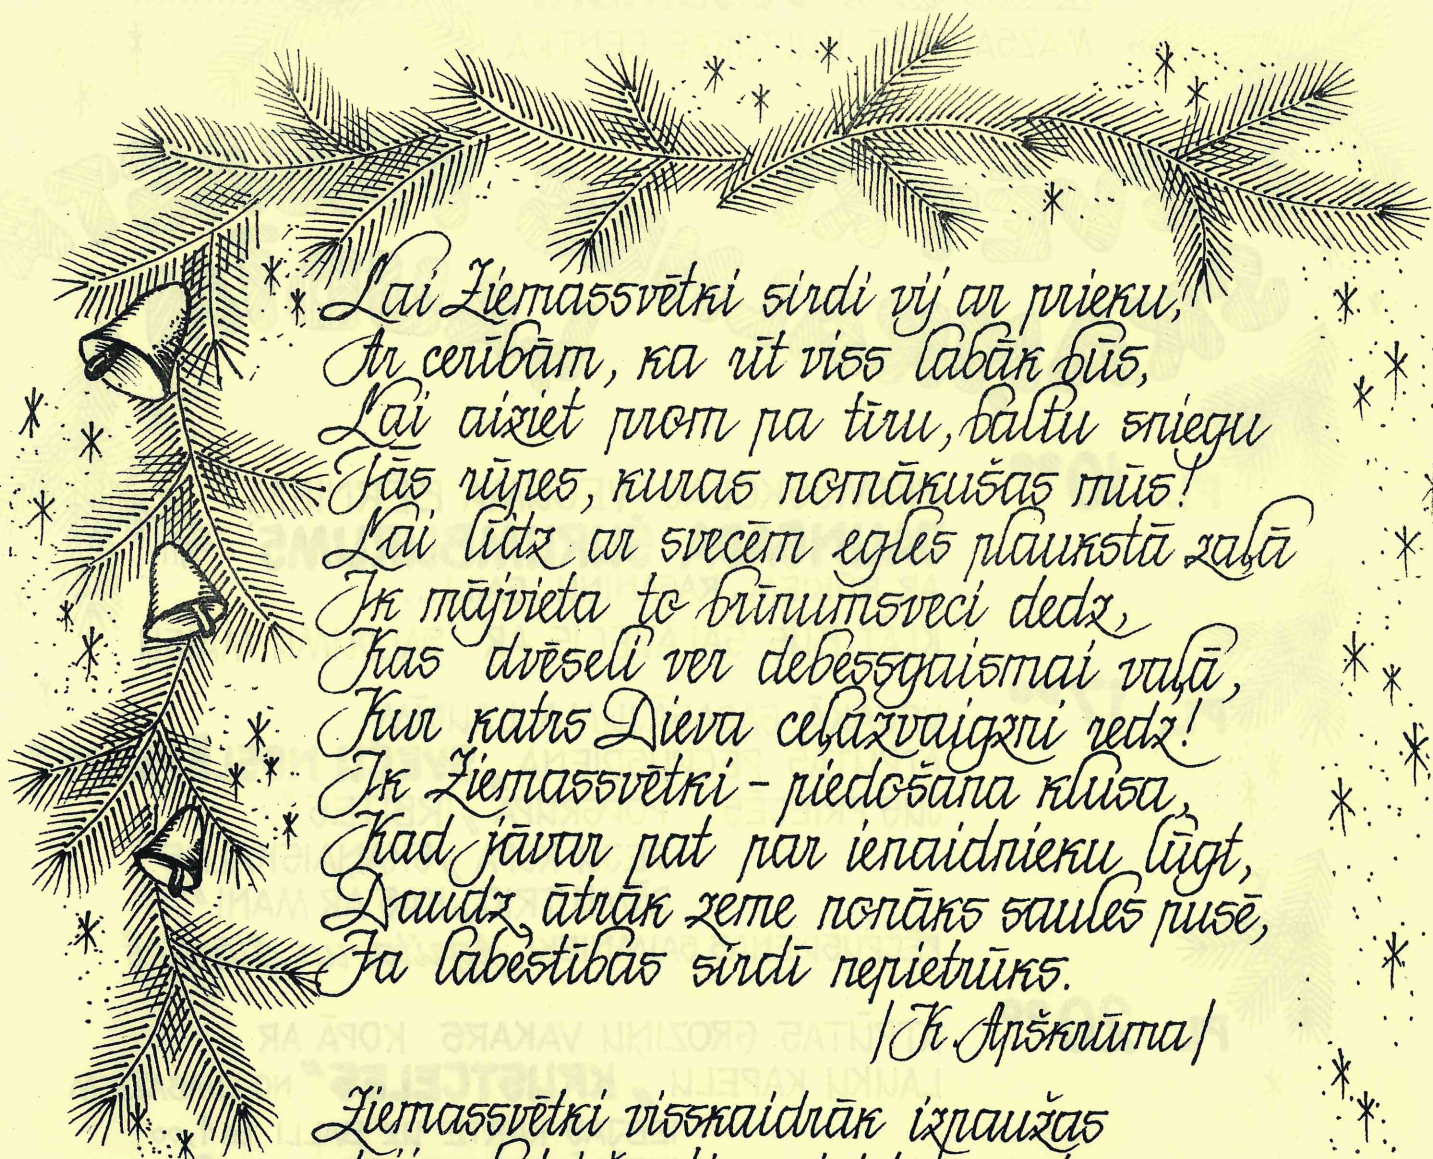 Lai Ziemassvētki sirdi vij ar prieku,
Ar cerībām, ka rīt viss labāk būs,
Lai aiziet prom pa tīru, baltu sniegu
Tās rūpes, kuras nomākušas mūs!
Lai līdz ar svecēm egles plaukstā zaļā
Ik mājvieta to brīnumsveci dedz,
Kas dvēseli ver debessgaismai vaļā,
Kur katrs Dieva ceļazvaigzni redz!
Ik Ziemassvētki - piedošana klusa,
Kad jāvar pat par ienaidnieku lūgt,
Daudz ātrāk zeme nonāks saules pusē,
Ja labestības sirdī nepietrūks.
/K. Apškrūma/
Ziemassvētki visskaidrāk izpaužas